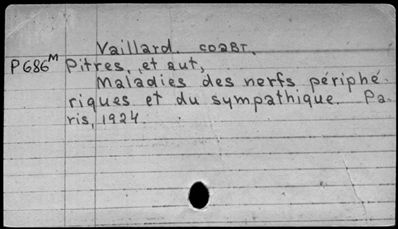 Vaillard. соавт.
P686ᴹ Pitres, et aut,
Maladies des nerfs périphé-
riques et du sympathique. Pa-
ris, 1924.